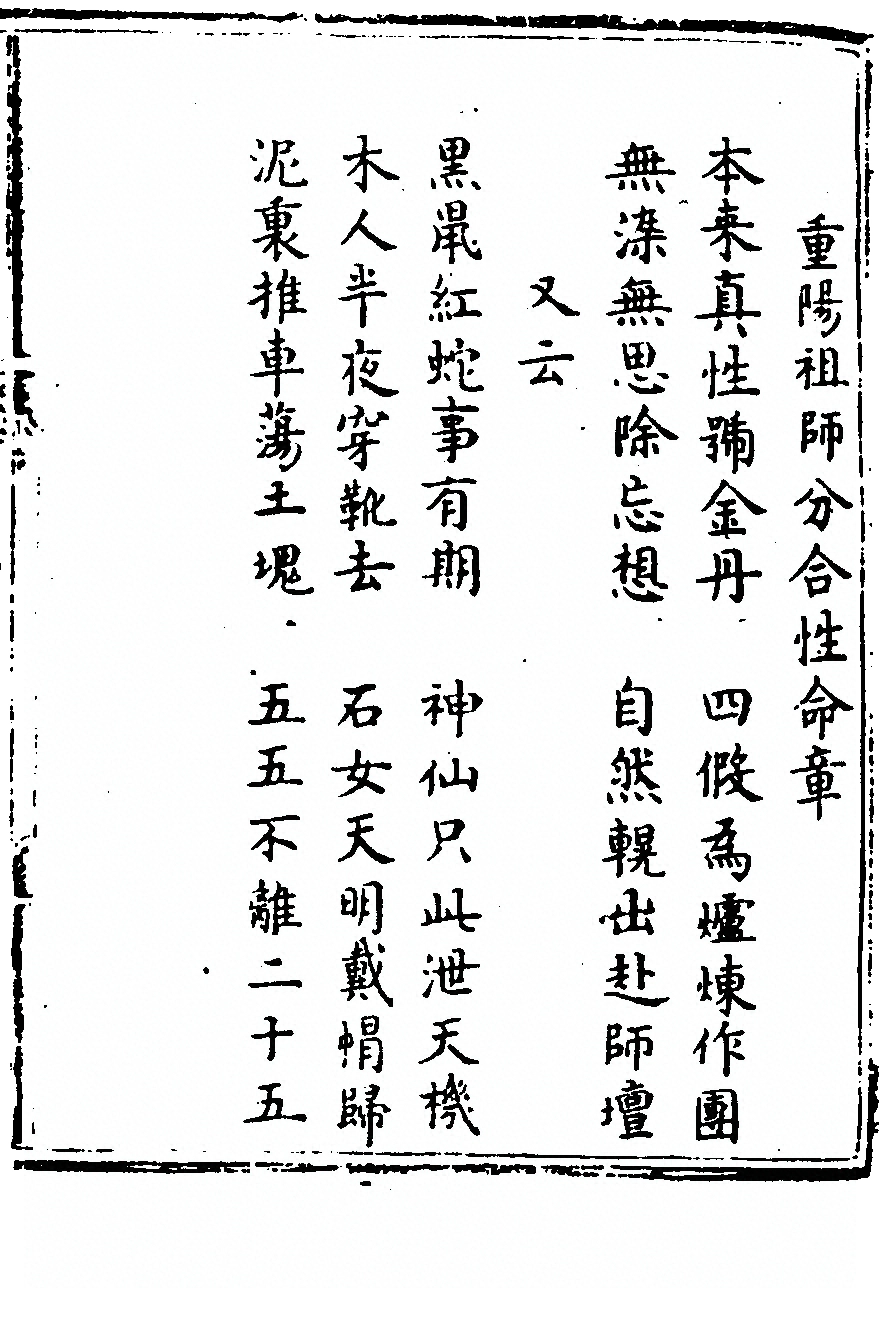 重陽祖師分合性命章
本来真性號金丹 四假為爐煉作團
無染無思除忘想 自然輥出赴師壇
又云
黑鼠紅蛇事有期 神仙只此泄天機
木人半夜穿靴去 石女天明戴帽歸
泥裏推車蕩土塊 五五不離二十五